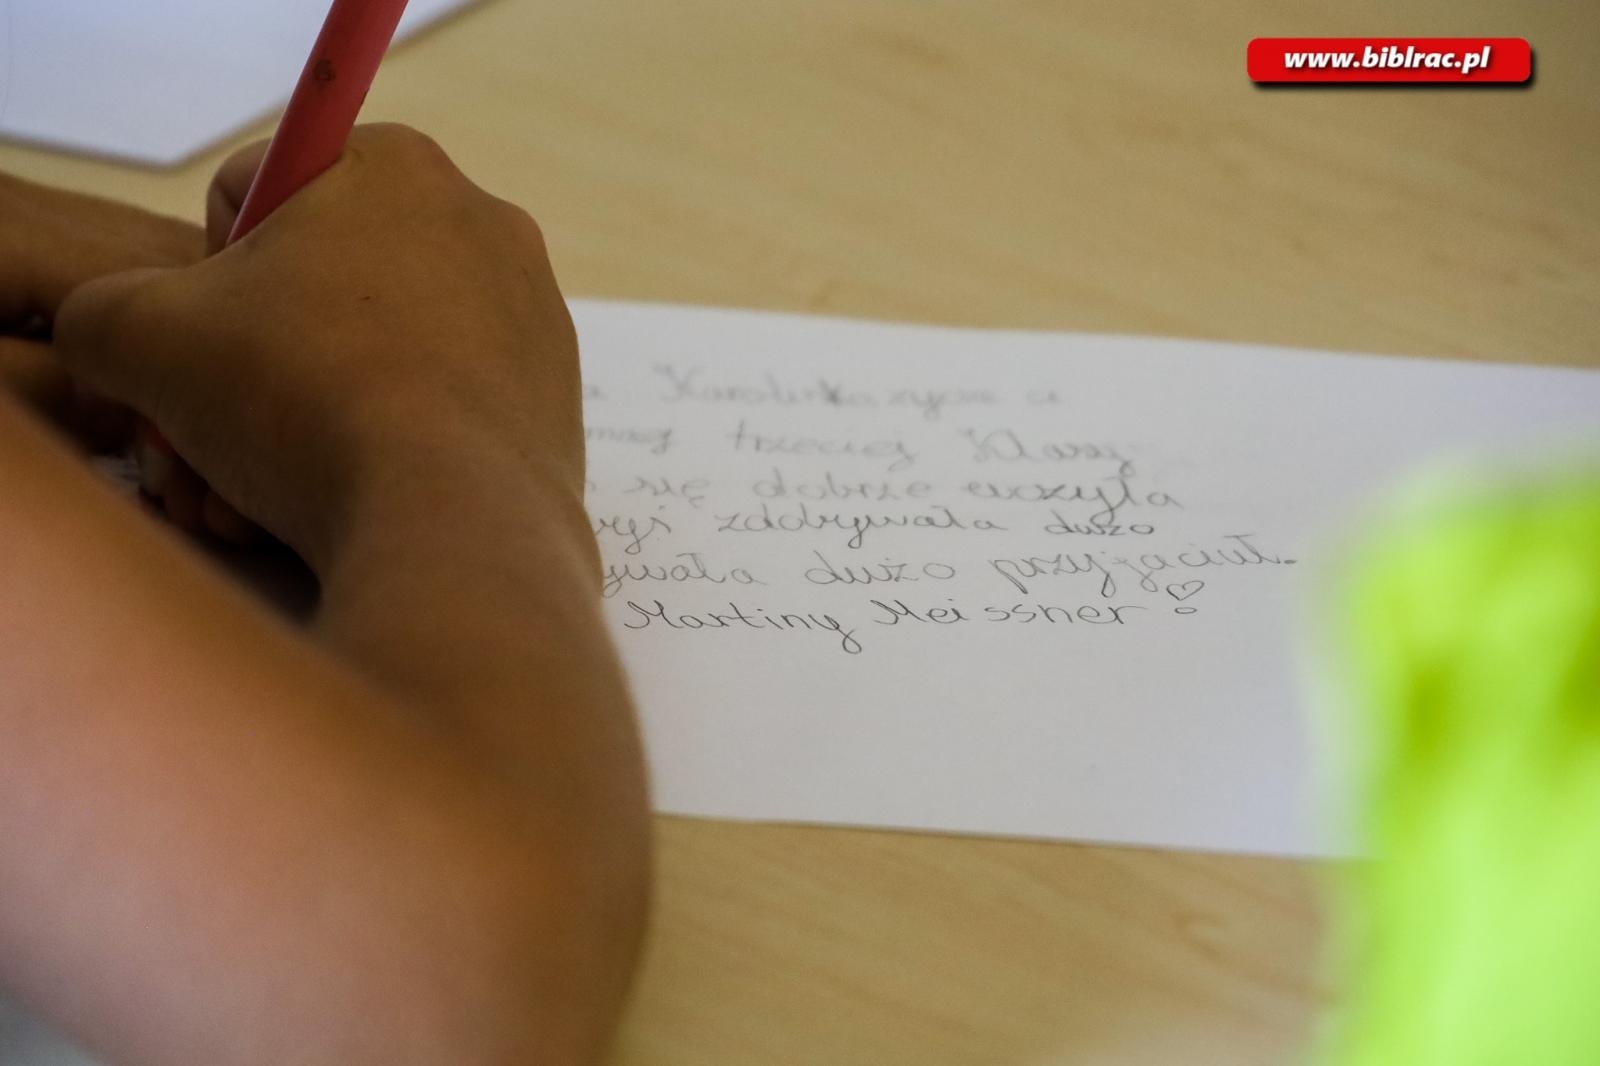 www.biblrac.pl
Karolinka życze ci
trzeciej Klasy
się dobrze uczyła
zdobywała dużo
dużo przyjaciuł.
Martiny Meissner